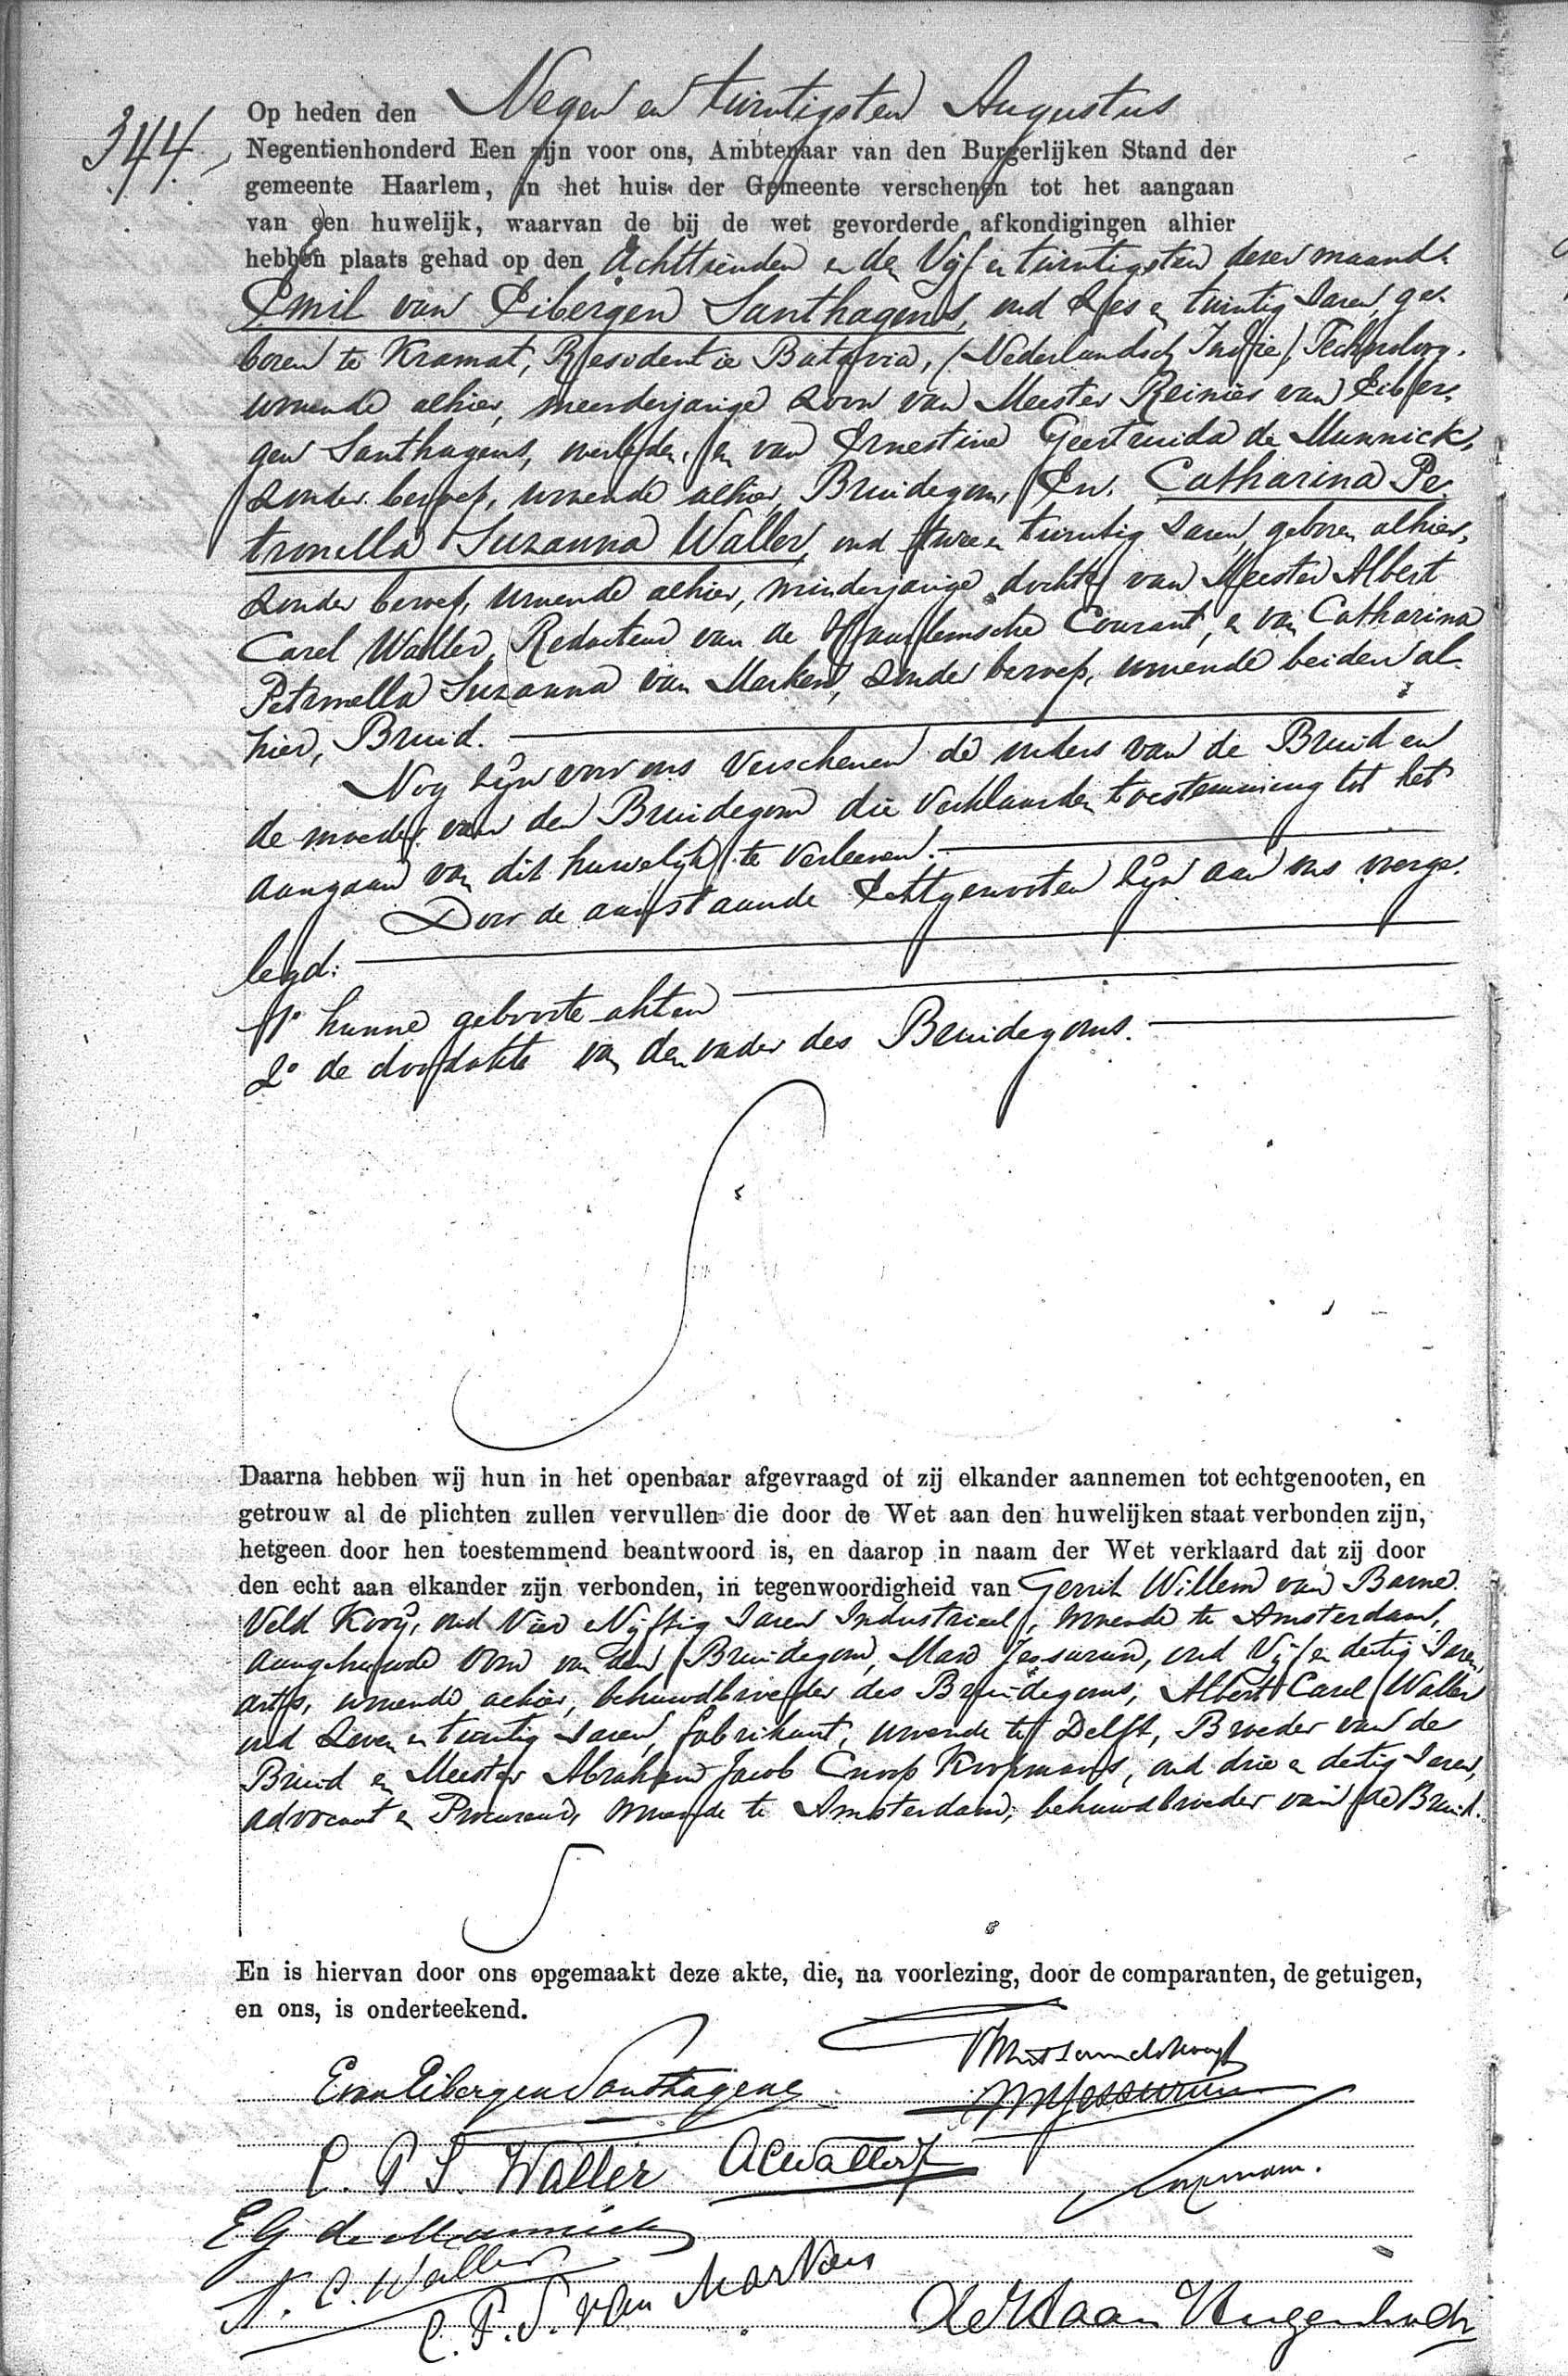 344.
Op heden den Negen en twintigsten Augustus
Negentienhonderd Een zijn voor ons, Ambtenaar van den Burgerlijken Stand der
gemeente Haarlem, in het huis der Gemeente verschenen tot het aangaan
van een huwelijk, waarvan de bij de wet gevorderde afkondigingen alhier
hebben plaats gehad op den Achttienden en den Vijf en twintigsten dezer maand.
Emil van Eibergen Santhagens, oud Zes en twintig Jaren, ge-
boren te Kramat, Residentie Batavia, (Nederlandsch Indie), Technoloog.
wonende alhier, meerderjarige zoon van Meester Reinier van Eiber-
gen Santhagens, overleden, en van Ernestine Geertruida de Munnick,
zonder beroep, wonende alhier, Bruidegom, En. Catharina Pe
tronella Suzanna Waller, oud twee en twintig Jaren, geboren alhier,
zonder beroep, wonende alhier, minderjarige dochter van Meester Albert
Carel Waller, Redacteur van de Haarlemsche Courant, en van Catharina
Petronella Suzanna van Marken, zonder beroep, wonende beiden al-
hier, Bruid.
Nog zijn voor ons verschenen de ouders van de Bruid en
de moeder van den Bruidegom die verklaarden toestemming tot het
aangaan van dit huwelijk te verleenen.
Door de aanstaande Echtgenooten zijn aan ons overge-
legd:
1° hunne geboorte-akten
2° de doodakte van den vader des Bruidegoms.
Daarna hebben wij hun in het openbaar afgevraagd of zij elkander aannemen tot echtgenooten, en
getrouw al de plichten zullen vervullen die door de Wet aan den huwelijken staat verbonden zijn,
hetgeen door hen toestemmend beantwoord is, en daarop in naam der Wet verklaard dat zij door
den echt aan elkander zijn verbonden, in tegenwoordigheid van Gerrit Willem van Barne
Veld Kooij, oud Vier en Vijftig Jaren Industrieel, wonende te Amsterdam,
aangehuwde Oom van den Bruidegom, Max Jessurun, oud Vijf en dertig Jaren,
arts, wonende alhier, behuwdbroeder des Bruidegoms, Albert Carel Waller
oud Zeven en twintig Jaren, fabrikant, wonende te Delft, Broeder van de
Bruid en Meester Abraham Jacob Cnoop Koopmans, oud drie en dertig Jaren,
advocaat en Procureur, wonende te Amsterdam, behuwdbroeder van de Bruid.
En is hiervan door ons opgemaakt deze akte, die, na voorlezing, door de comparanten, de getuigen,
en ons, is onderteekend.
E van Eibergen Santhagens
M Jessurun
C. P. S. Waller ACWaller Jr
Koopmans.
E G de Munnick
A. C. Waller
C. P. S. van Marken
De Haan Hugenholtz